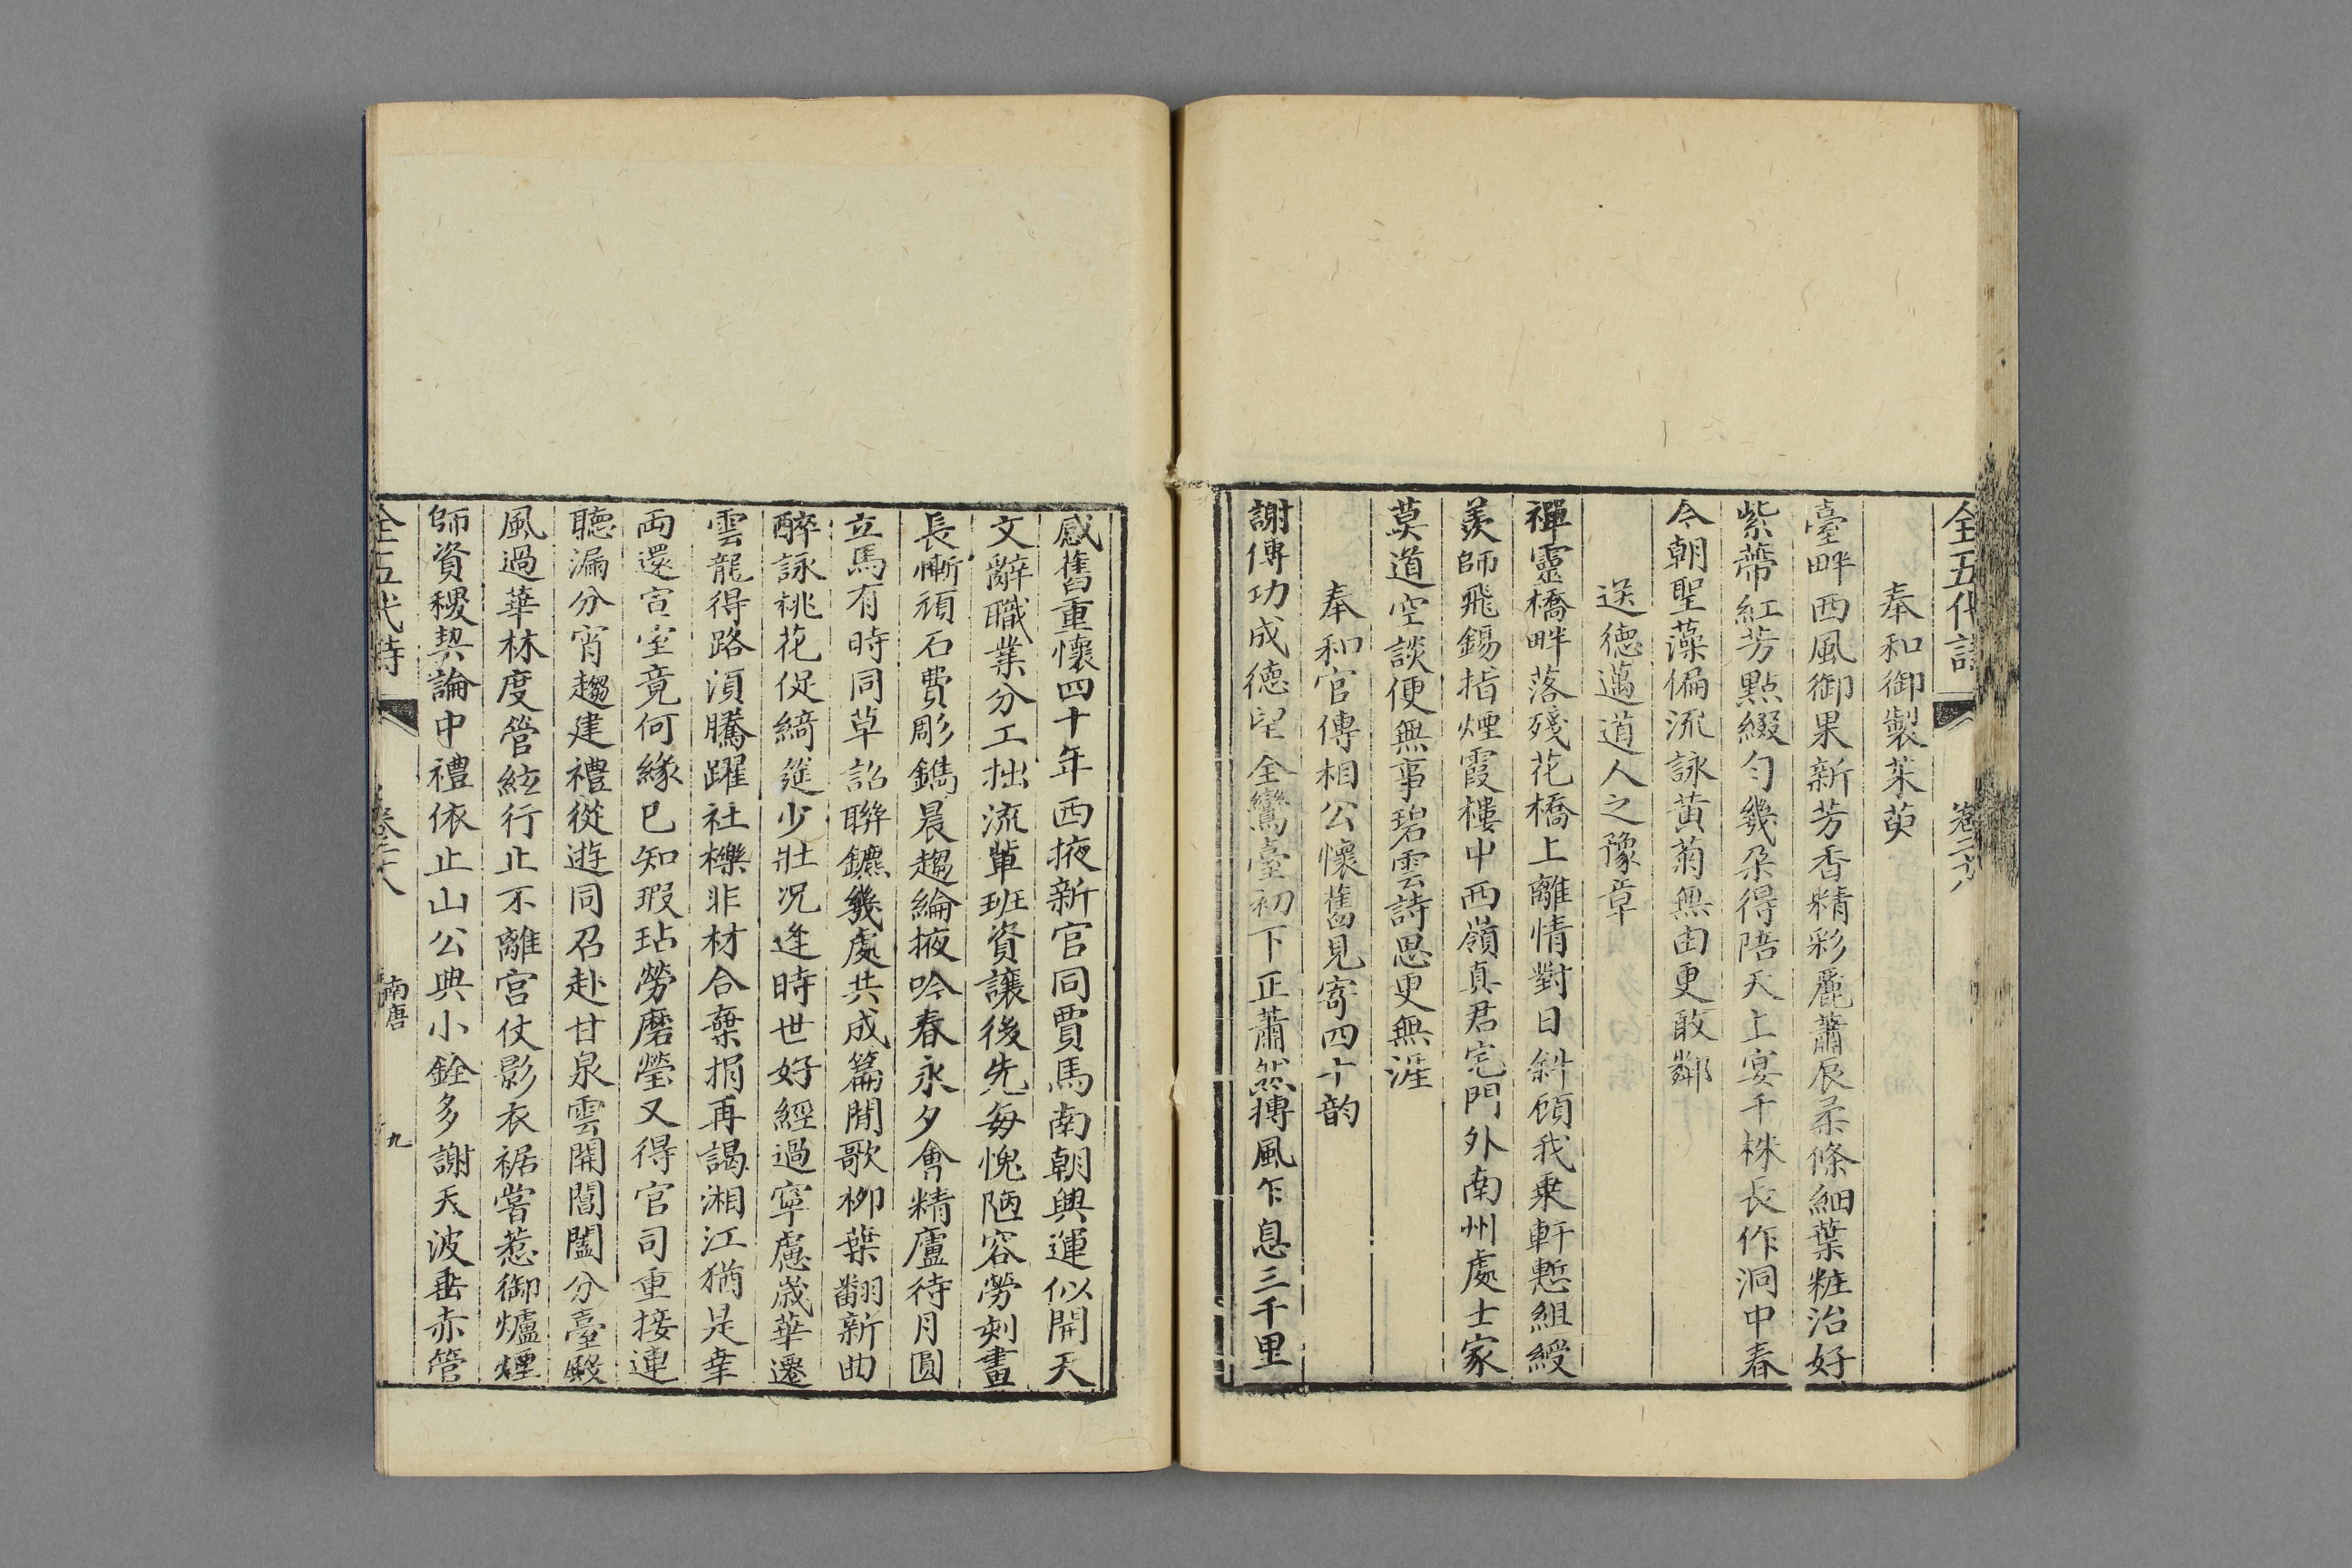 全五代詩 卷二十八
奉和御製茱萸
臺畔西風御果新芳香精彩麗蕭辰柔條細葉粧治好
紫蔕紅芳點綴勻幾朶得陪天上宴千株長作洞中春
今朝聖藻偏流詠黃菊無由更敢鄰
送德邁道人之豫章
禪靈橋畔落殘花橋上離情對日斜顧我乘軒慙組綬
羨師飛錫指煙霞樓中西嶺真君宅門外南州處士家
莫道空談便無事碧雲詩思更無涯
奉和官傅相公懷舊見寄四十韵
謝傅功成德望全鸞臺初下正蕭然摶風乍息三千里
感舊重懷四十年西掖新官同賈馬南朝興運似開天
文辭職業分工拙流輩班資讓後先每愧陋容勞刻畫
長慚頑石費彫鐫晨趨綸掖吟春永夕會精廬待月圓
立馬有時同草詔聯鑣幾處共成篇閒歌柳葉翻新曲
醉詠桃花促綺筵少壯况逢時世好經過寧慮歲華遷
雲龍得路須騰躍社櫟非材合棄捐再謁湘江猶是幸
兩還宣室竟何緣已知瑕玷勞磨瑩又得官司重接連
聽漏分宵趨建禮從遊同召赴甘泉雲開閶闔分臺殿
風過華林度管絃行止不離宮仗影衣裾嘗惹御爐煙
師資稷契論中禮依止山公典小銓多謝天波垂赤管
全五代詩 卷二十八 南唐 九